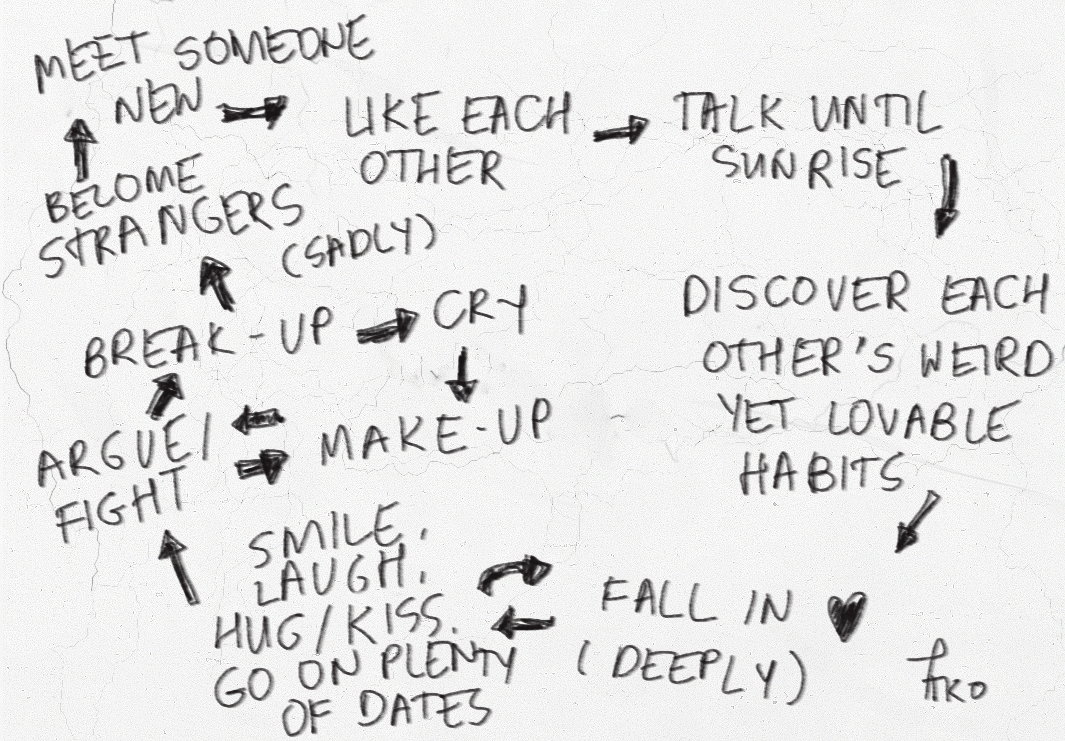 MEET SOMEONE
NEW
LIKE EACH
OTHER
TALK UNTIL
SUNRISE
DISCOVER EACH
OTHER'S WEIRD
YET LOVABLE
HABITS
FALL IN
(DEEPLY)
SMILE,
LAUGH,
HUG/KISS.
GO ON PLENTY
OF DATES
ARGUE/
FIGHT
MAKE-UP
BREAK-UP
CRY
BECOME
STRANGERS
(SADLY)